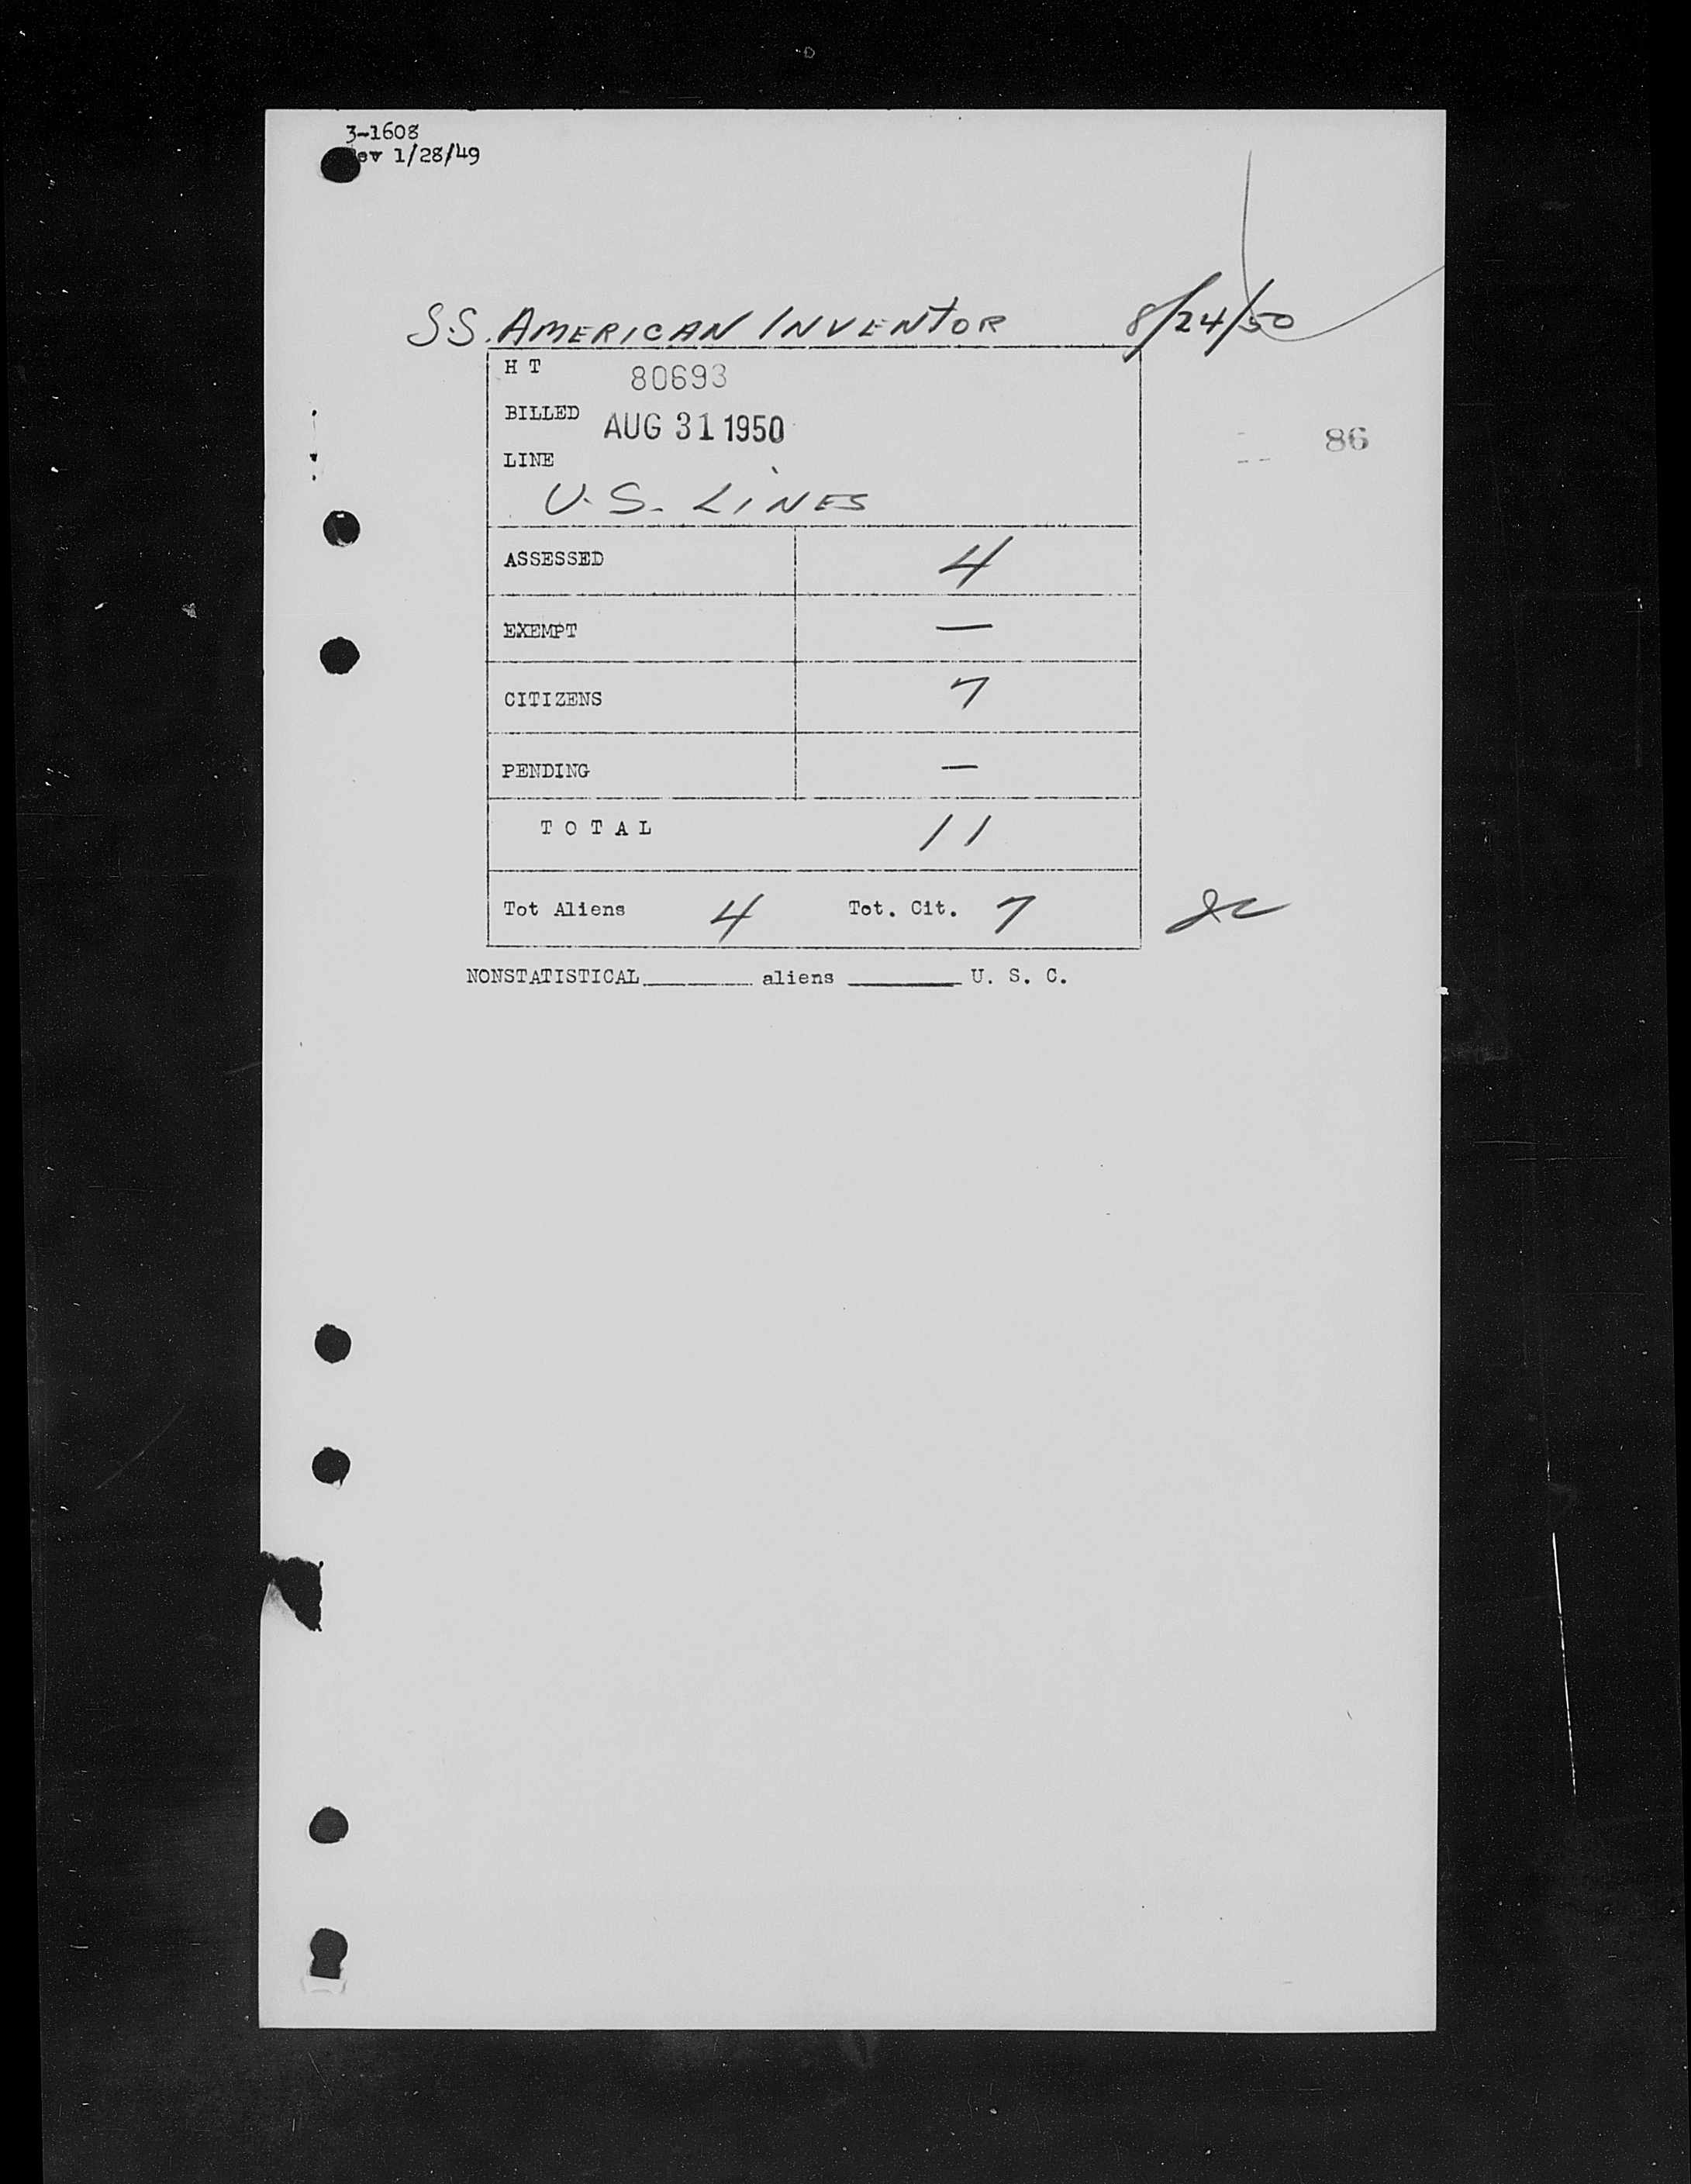 3-1608
ev 1/28/49
S.S. AMERICAN INVENTOR 8/24/50
H T 80693
BILLED AUG 31 1950
86
LINE
U.S. LINES
ASSESSED 4
EXEMPT —
CITIZENS 7
PENDING —
TOTAL 11
Tot Aliens 4 Tot. Cit. 7
NONSTATISTICAL________ aliens ________ U. S. C.